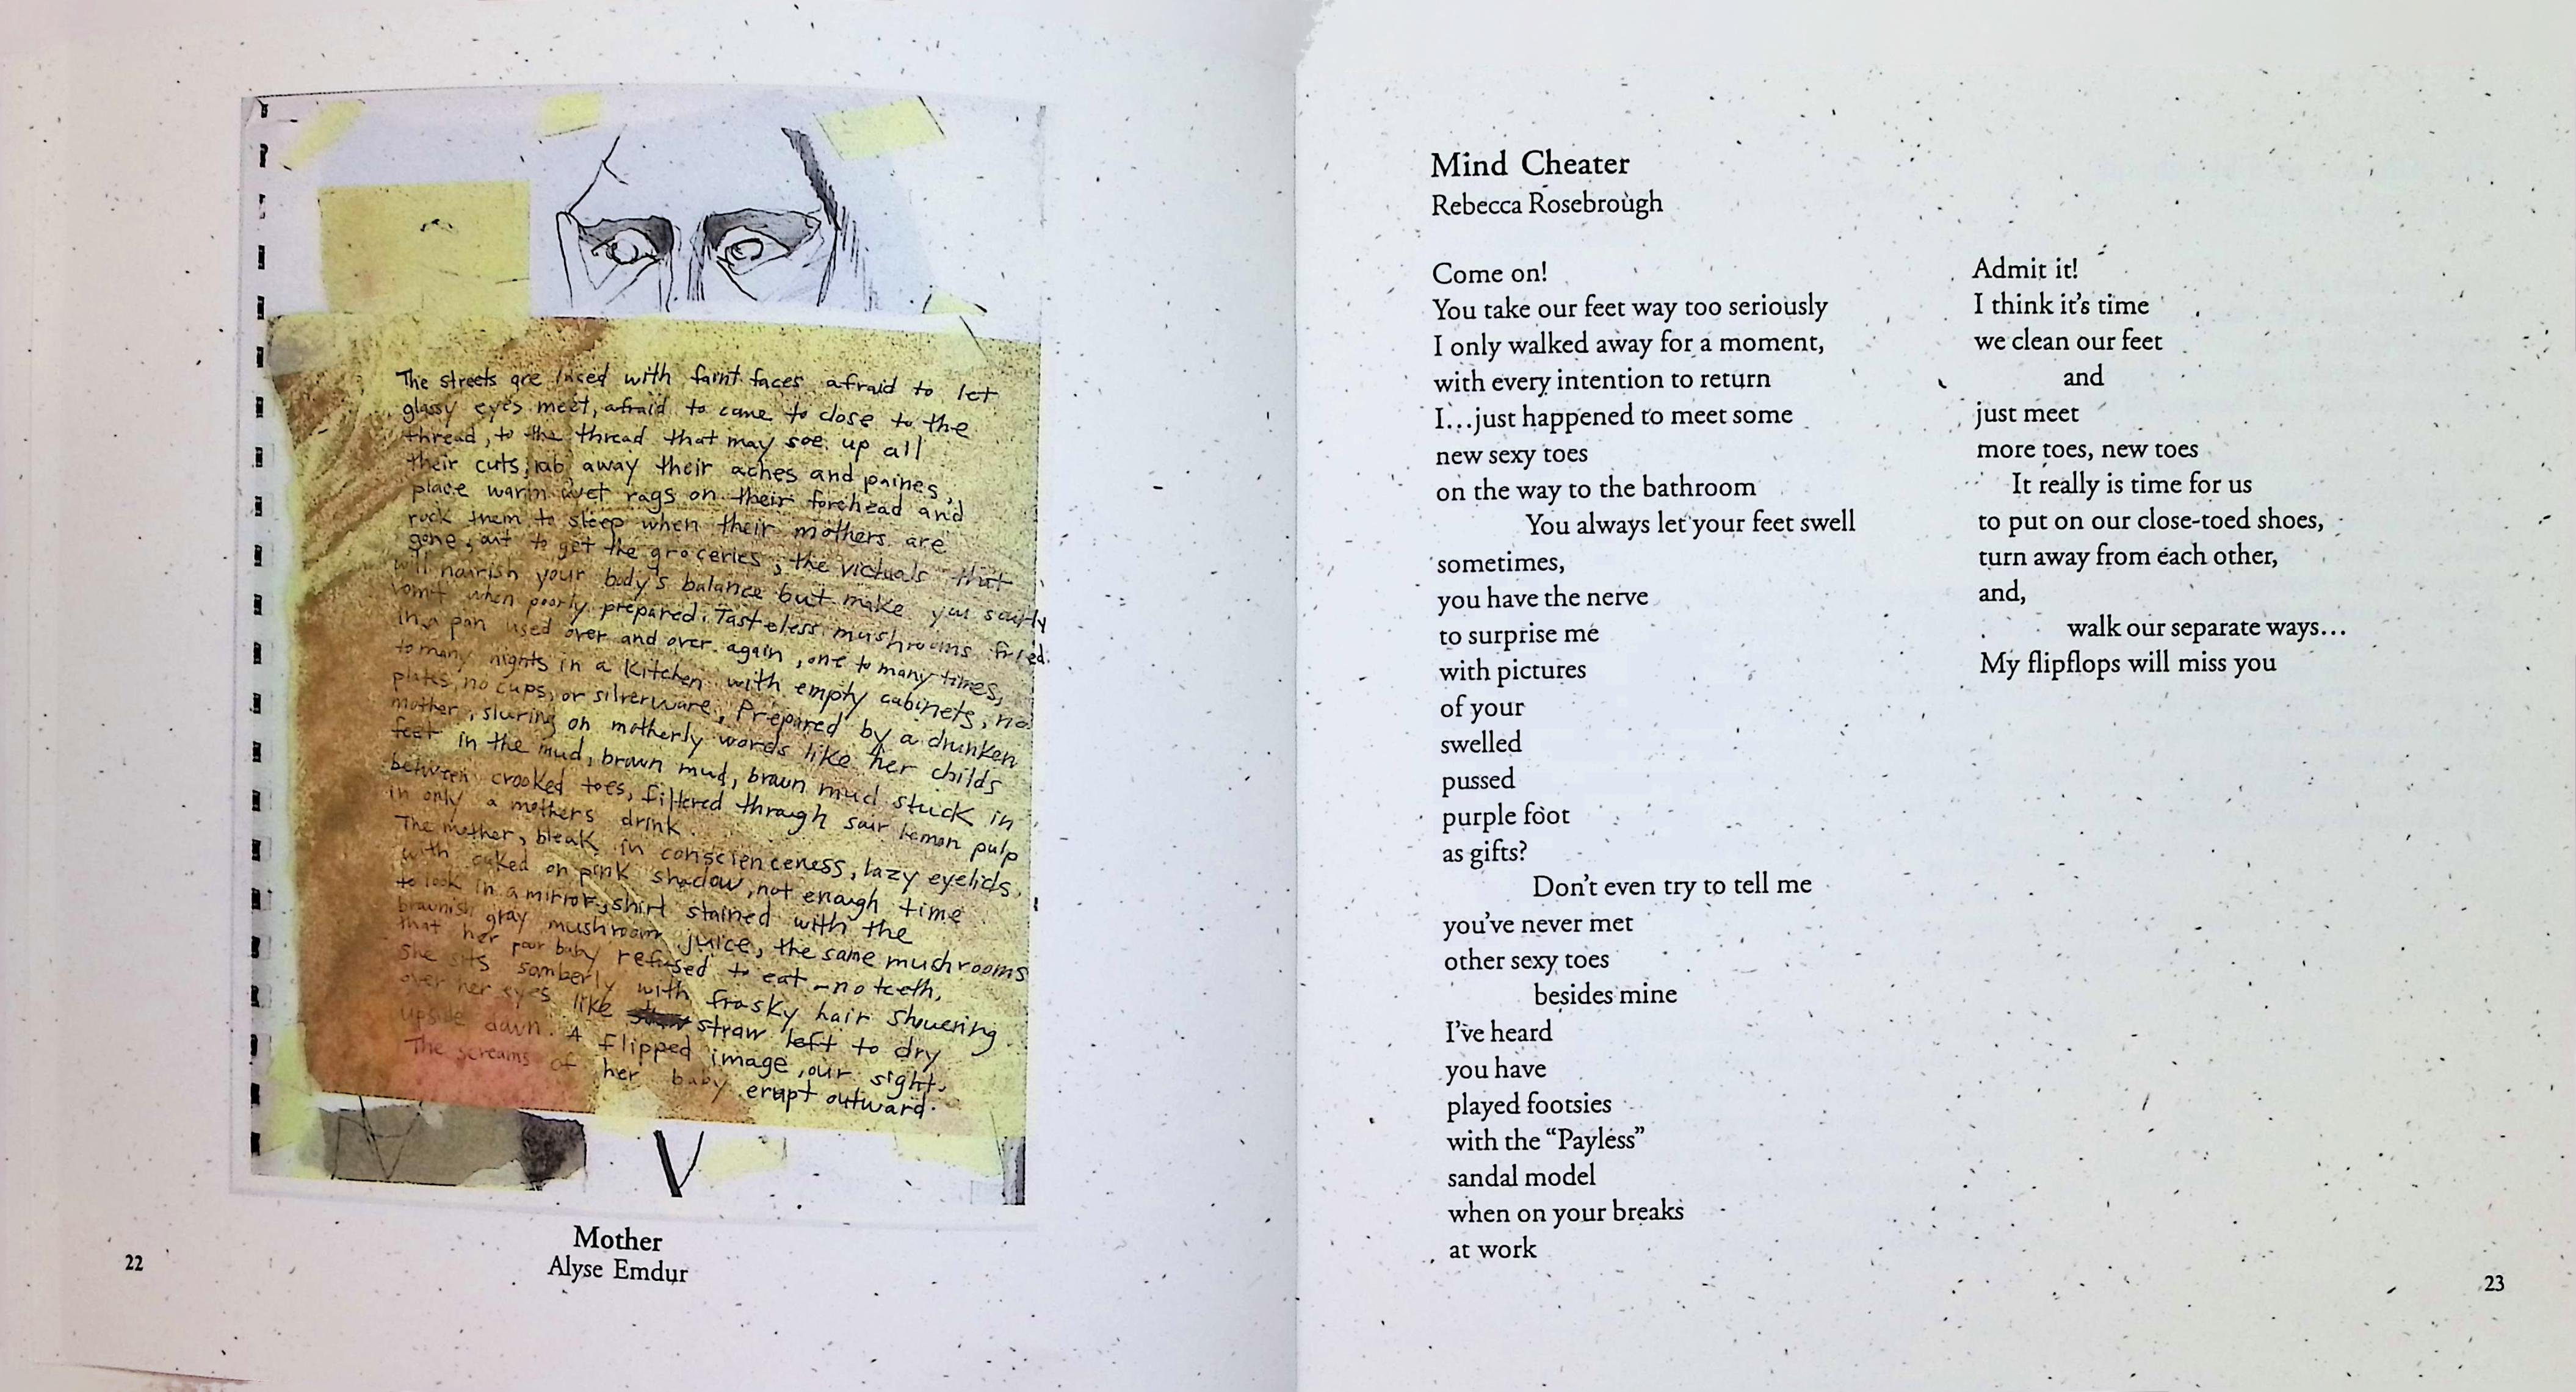 The streets are laced with faint faces afraid to let
glassy eyes meet, afraid to come to close to the
thread, to the thread that may soe up all
their cuts, rub away their aches and paines,
place warm wet rags on their forehead and
rock them to sleep when their mothers are
gone, out to get the groceries, the victuals that
will nourish your body's balance but make you
vomit when poorly prepared. Tasteless mushrooms fried
in a pan used over and over again, one to many times,
to many nights in a kitchen with empty cabinets, no
plates, no cups, or silverware, Prepared by a drunken
mother, sluring on motherly words like her childs
feet in the mud, brown mud, brown mud stuck in
between crooked toes, filtered through sour lemon pulp
in only a mothers drink.
The mother, bleak in conscienceness, lazy eyelids
with caked on pink shadow, not enough time
to look in a mirror, shirt stained with the
brownish gray mushroom juice, the same mushrooms
that her poor baby refused to eat - no teeth,
She sits somberly with frosky hair showering
over her eyes like straw left to dry
upside down. A flipped image, our sight.
The screams of her baby erupt outward.
Mother
Alyse Emdur
22
Mind Cheater
Rebecca Rosebrough
Come on!
You take our feet way too seriously
I only walked away for a moment,
with every intention to return
I...just happened to meet some
new sexy toes
on the way to the bathroom
You always let your feet swell
sometimes,
you have the nerve
to surprise me
with pictures
of your
swelled
pussed
purple foot
as gifts?
Don't even try to tell me
you've never met
other sexy toes
besides mine
I've heard
you have
played footsies
with the “Payless”
sandal model
when on your breaks
at work
Admit it!
I think it's time
we clean our feet
and
just meet
more toes, new toes
It really is time for us
to put on our close-toed shoes,
turn away from each other,
and,
walk our separate ways...
My flipflops will miss you
23